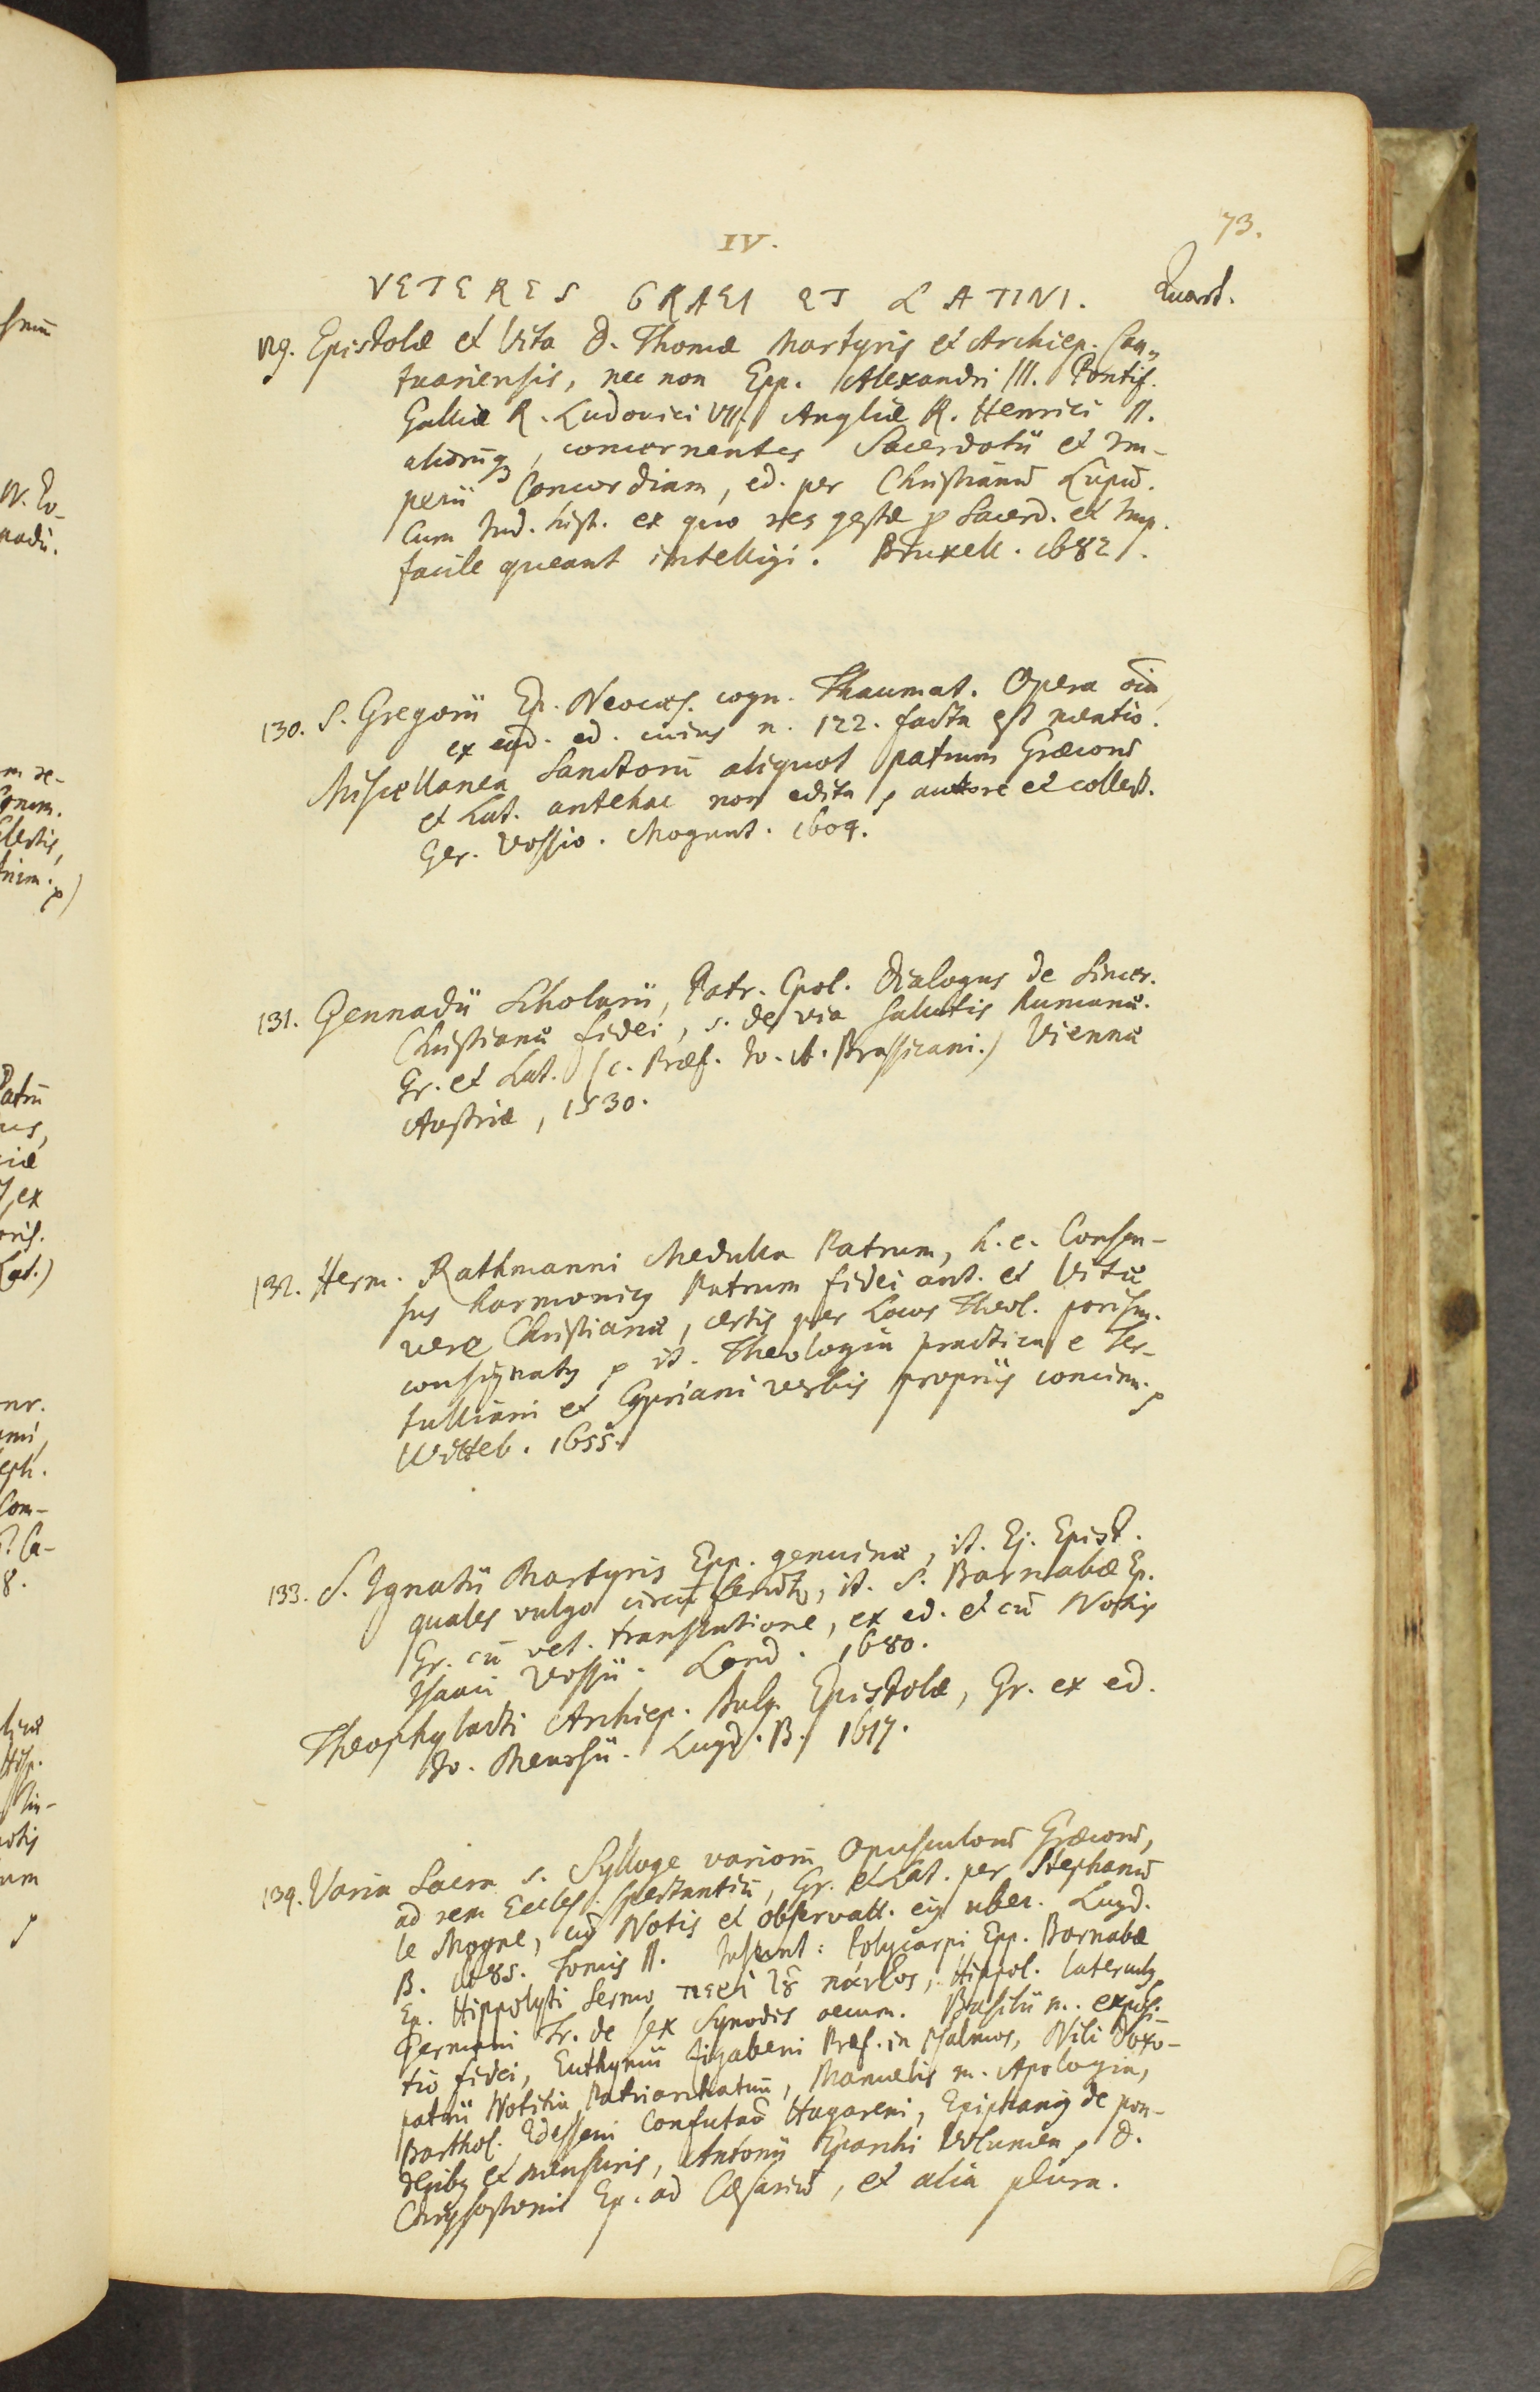 73.
IV.
VETERES GRAECI ET LATINI. Quart.
129. Epistolæ et Vita D. Thomæ Martyris et Archiep. Can„
tuariensis, nec non Epp. Alexandri III. Pontif.
Galliæ R. Ludovici VII. Angliæ R. Henrici II.
aliorūq, concernentes Sacerdotii et Im-
perii Concordiam, ed. per Christianū Lupū.
Cum Ind. hist. ex quo res gestæ p Sacerd. et Imp.
facile queant intelligi. Bruxell. 1682.
130. S. Gregorii Ep. Neocæs. cogn. Thaumat. Opera oīa
ex ead. ed. cuius n. 122. facta est mentio.
Miscellanea Sanctorū aliquot patrum Græcorū
et Lat. antehac non edita p autore et collect.
Ger. Vossio. Mogunt. 1604.
131. Gennadii Scholarii, Patr. Cpol. Dialogus de Sincer.
Christianæ fidei, s. de via salutis humanæ.
Gr. et Lat. (c. Præf. Io. A. Brassicani.) Viennæ
Austriæ, 1530.
132. Herm. Rathmanni Medulla Patrum, h. e. Consen-
sus harmonicus Patrum fidei ant. et Vitæ
vere Christianæ, certis per Locos Theol. porism.
consignatus p it. Theologia practica e Ter-
tulliani et Cypriani verbis propriis concinn. p
Witteb. 1655.
133. S. Ignatii Martyris Epp. genuinæ, it. Ej. Epist.
quales vulgo circūferūtr, it. S. Barnabæ Ep.
Gr. cū vet. translatione, ex ed. et cū Notis
Isaaci Vossii. Lond. 1680.
Theophylacti Archiep. Bulg. Epistolæ, Gr. ex ed.
Io. Meursii. Lugd. B. 1617.
134. Varia Sacra s. Sylloge variorū Opusculorū Græcorū,
ad rem Eccles. spectantiū, Gr. et Lat. per Stephanū
le Moyne, cū Notis et observatt. ej. uber. Lugd.
B. 1685. Tomis II. Insunt: Polycarpi Epp. Barnabæ
Ep. Hippolyti Sermo περὶ τȣ̃ παντὸς, Hippol. laterculus
Germani Tr. de sex Synodis oecum. Basilii m. exposi-
tio fidei, Euthymii Zigabeni Præf. in Psalmos, Nili Doxo-
patrii Notitia Patriarchatuū, Manuelis m. Apologia,
Barthol. Edesseni Confutaõ Hagareni, Epiphanius de pon-
deribus et mensuris, Antonii Eparchi Volumen, D.
Chrysostomi Ep. ad Cæsariū, et alia plura.